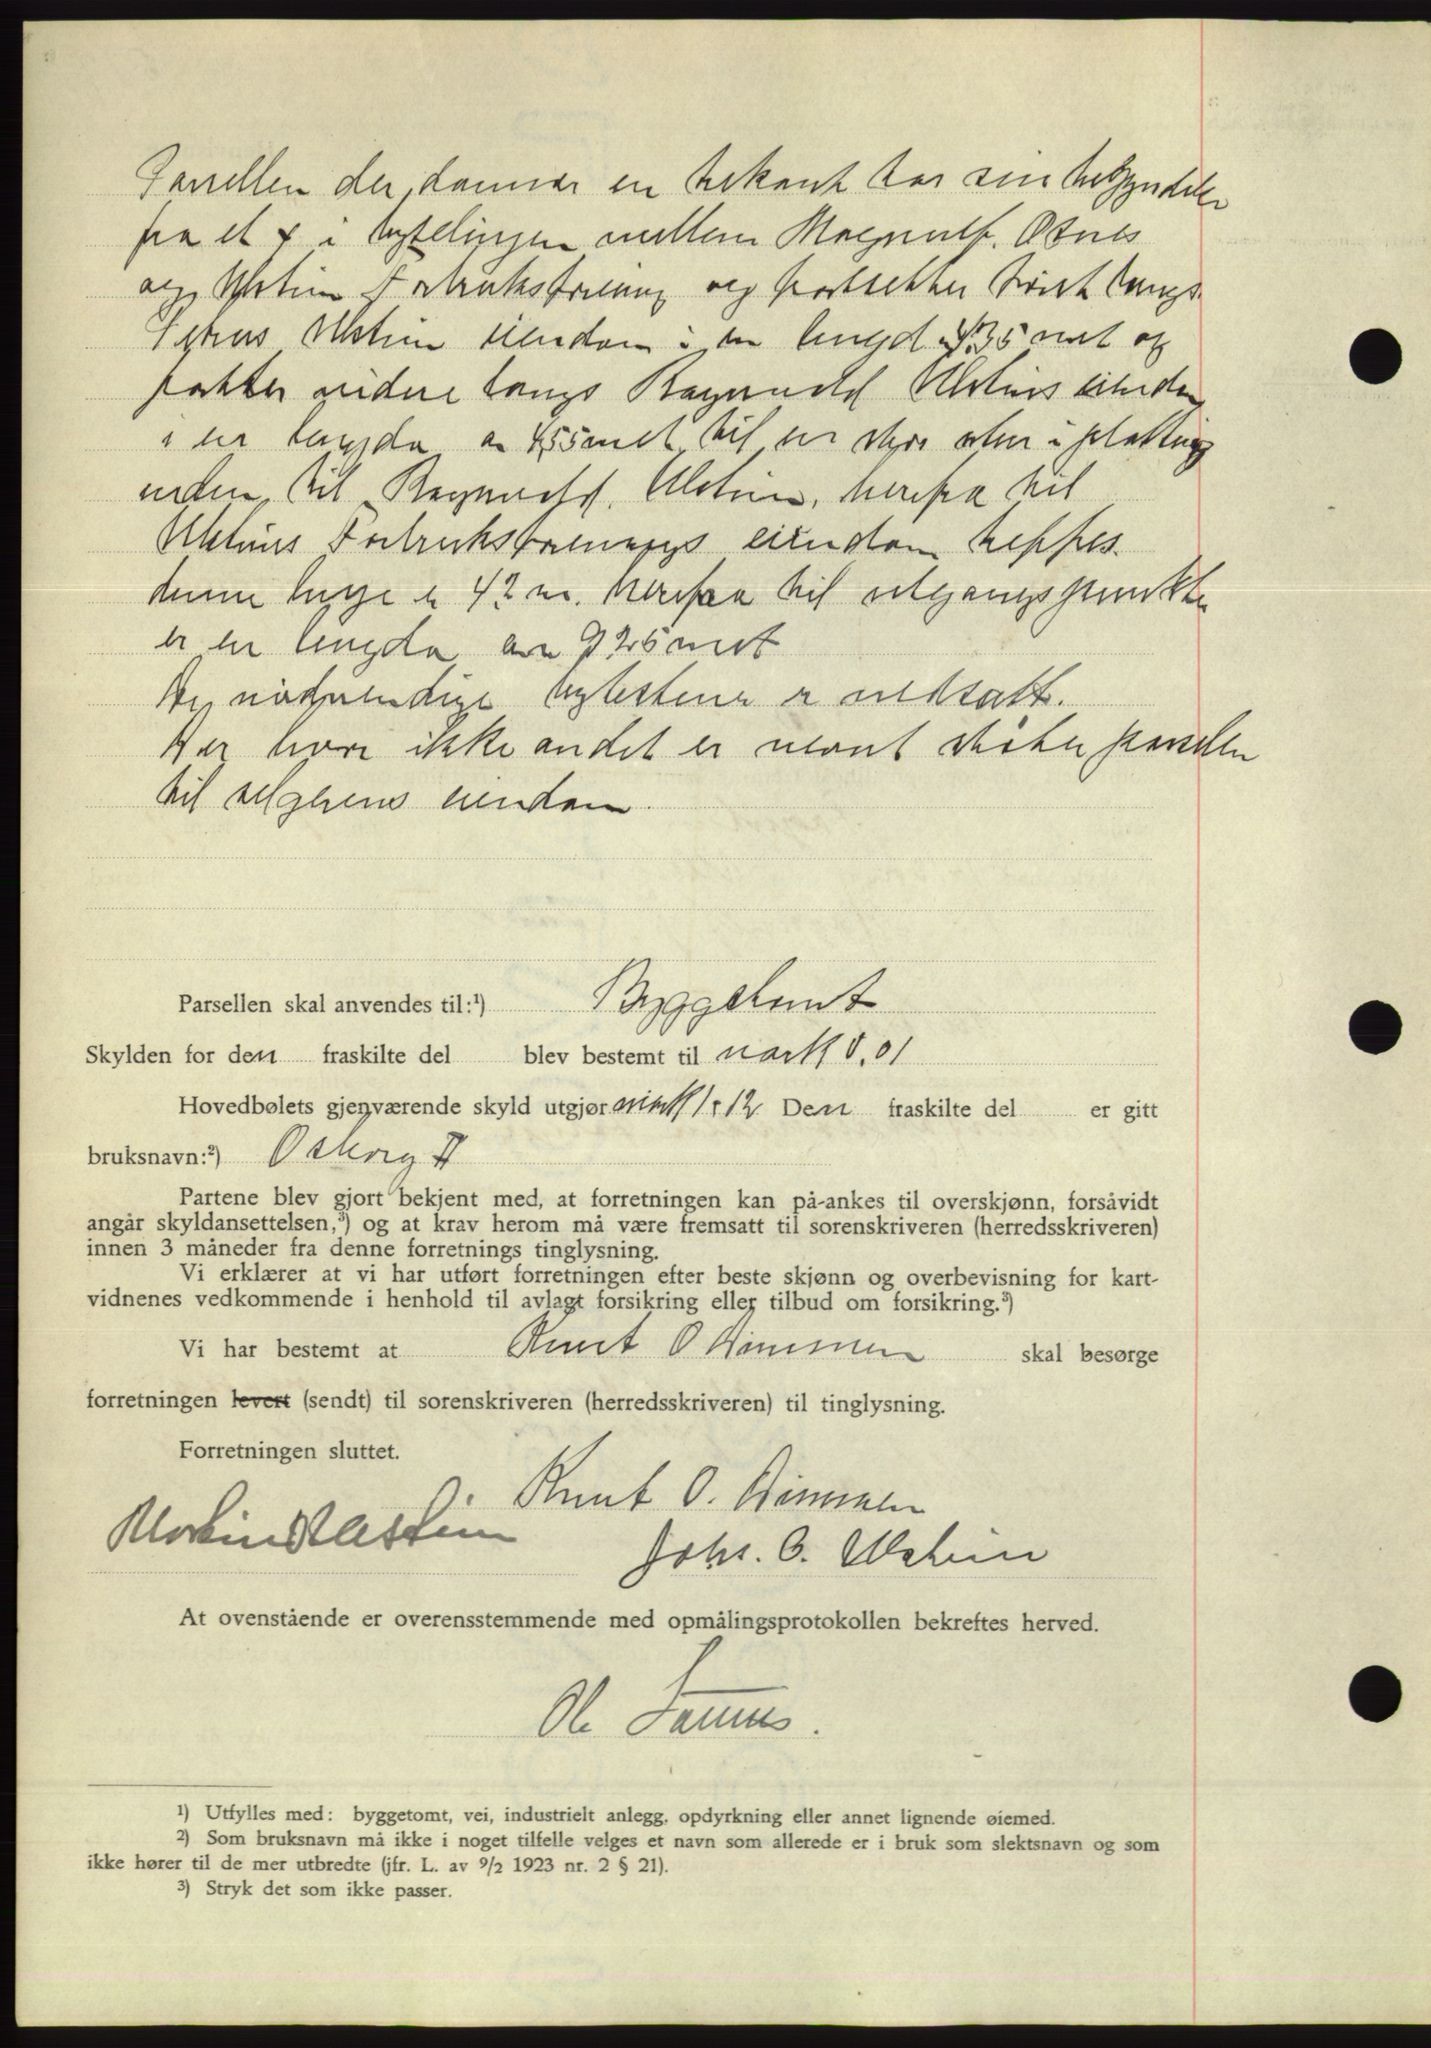 Parsellen der danner en trekant har sin begyndelse
fra et x i bytelinjen mellem Magnulf. Osnes
og Ulstein Forbruksforening og fortsetter først langs
Petrus Ulstein eiendom i en lengd 4,35 met og
videre langs Ragnvald Ulsteins eiendom
i en lengda av 4,55 met til en
til Ragnvald Ulstein, herefra til
Ulsteins Forbruksforenings eiendom treffes.
denne linje er 42 m. herefra til utgangspunktet
er en lengda av 9 25 met
De nødvendige bytestener er nedsatt.
Der hvor ikke andet er nevnt støter parsellen
til selgerens eiendom.
Parsellen skal anvendes til:¹) Byggetomt
Skylden for den fraskilte del blev bestemt til mark 0,01
Hovedbølets gjenværende skyld utgjør mark 1,12 Den fraskilte del er gitt
bruksnavn:²) Osborg II
Partene blev gjort bekjent med, at forretningen kan på-ankes til overskjønn, forsåvidt
angår skyldansettelsen,³) og at krav herom må være fremsatt til sorenskriveren (herredsskriveren)
innen 3 måneder fra denne forretnings tinglysning.
Vi erklærer at vi har utført forretningen efter beste skjønn og overbevisning for kart-
vidnenes vedkommende i henhold til avlagt forsikring eller tilbud om forsikring.³)
Vi har bestemt at Knut O Dimmen skal besørge
forretningen levert (sendt) til sorenskriveren (herredsskriveren) til tinglysning.
Forretningen sluttet.
Knut O. Dimmen
Martin Ulstein
Johs. O. Ulstein
At ovenstående er overensstemmende med opmålingsprotokollen bekreftes herved.
Ole
¹) Utfylles med: byggetomt, vei, industrielt anlegg, opdyrkning eller annet lignende øiemed.
²) Som bruksnavn må ikke i noget tilfelle velges et navn som allerede er i bruk som slektsnavn og som
ikke hører til de mer utbredte (jfr. L. av 9/2 1923 nr. 2 § 21).
³) Stryk det som ikke passer.